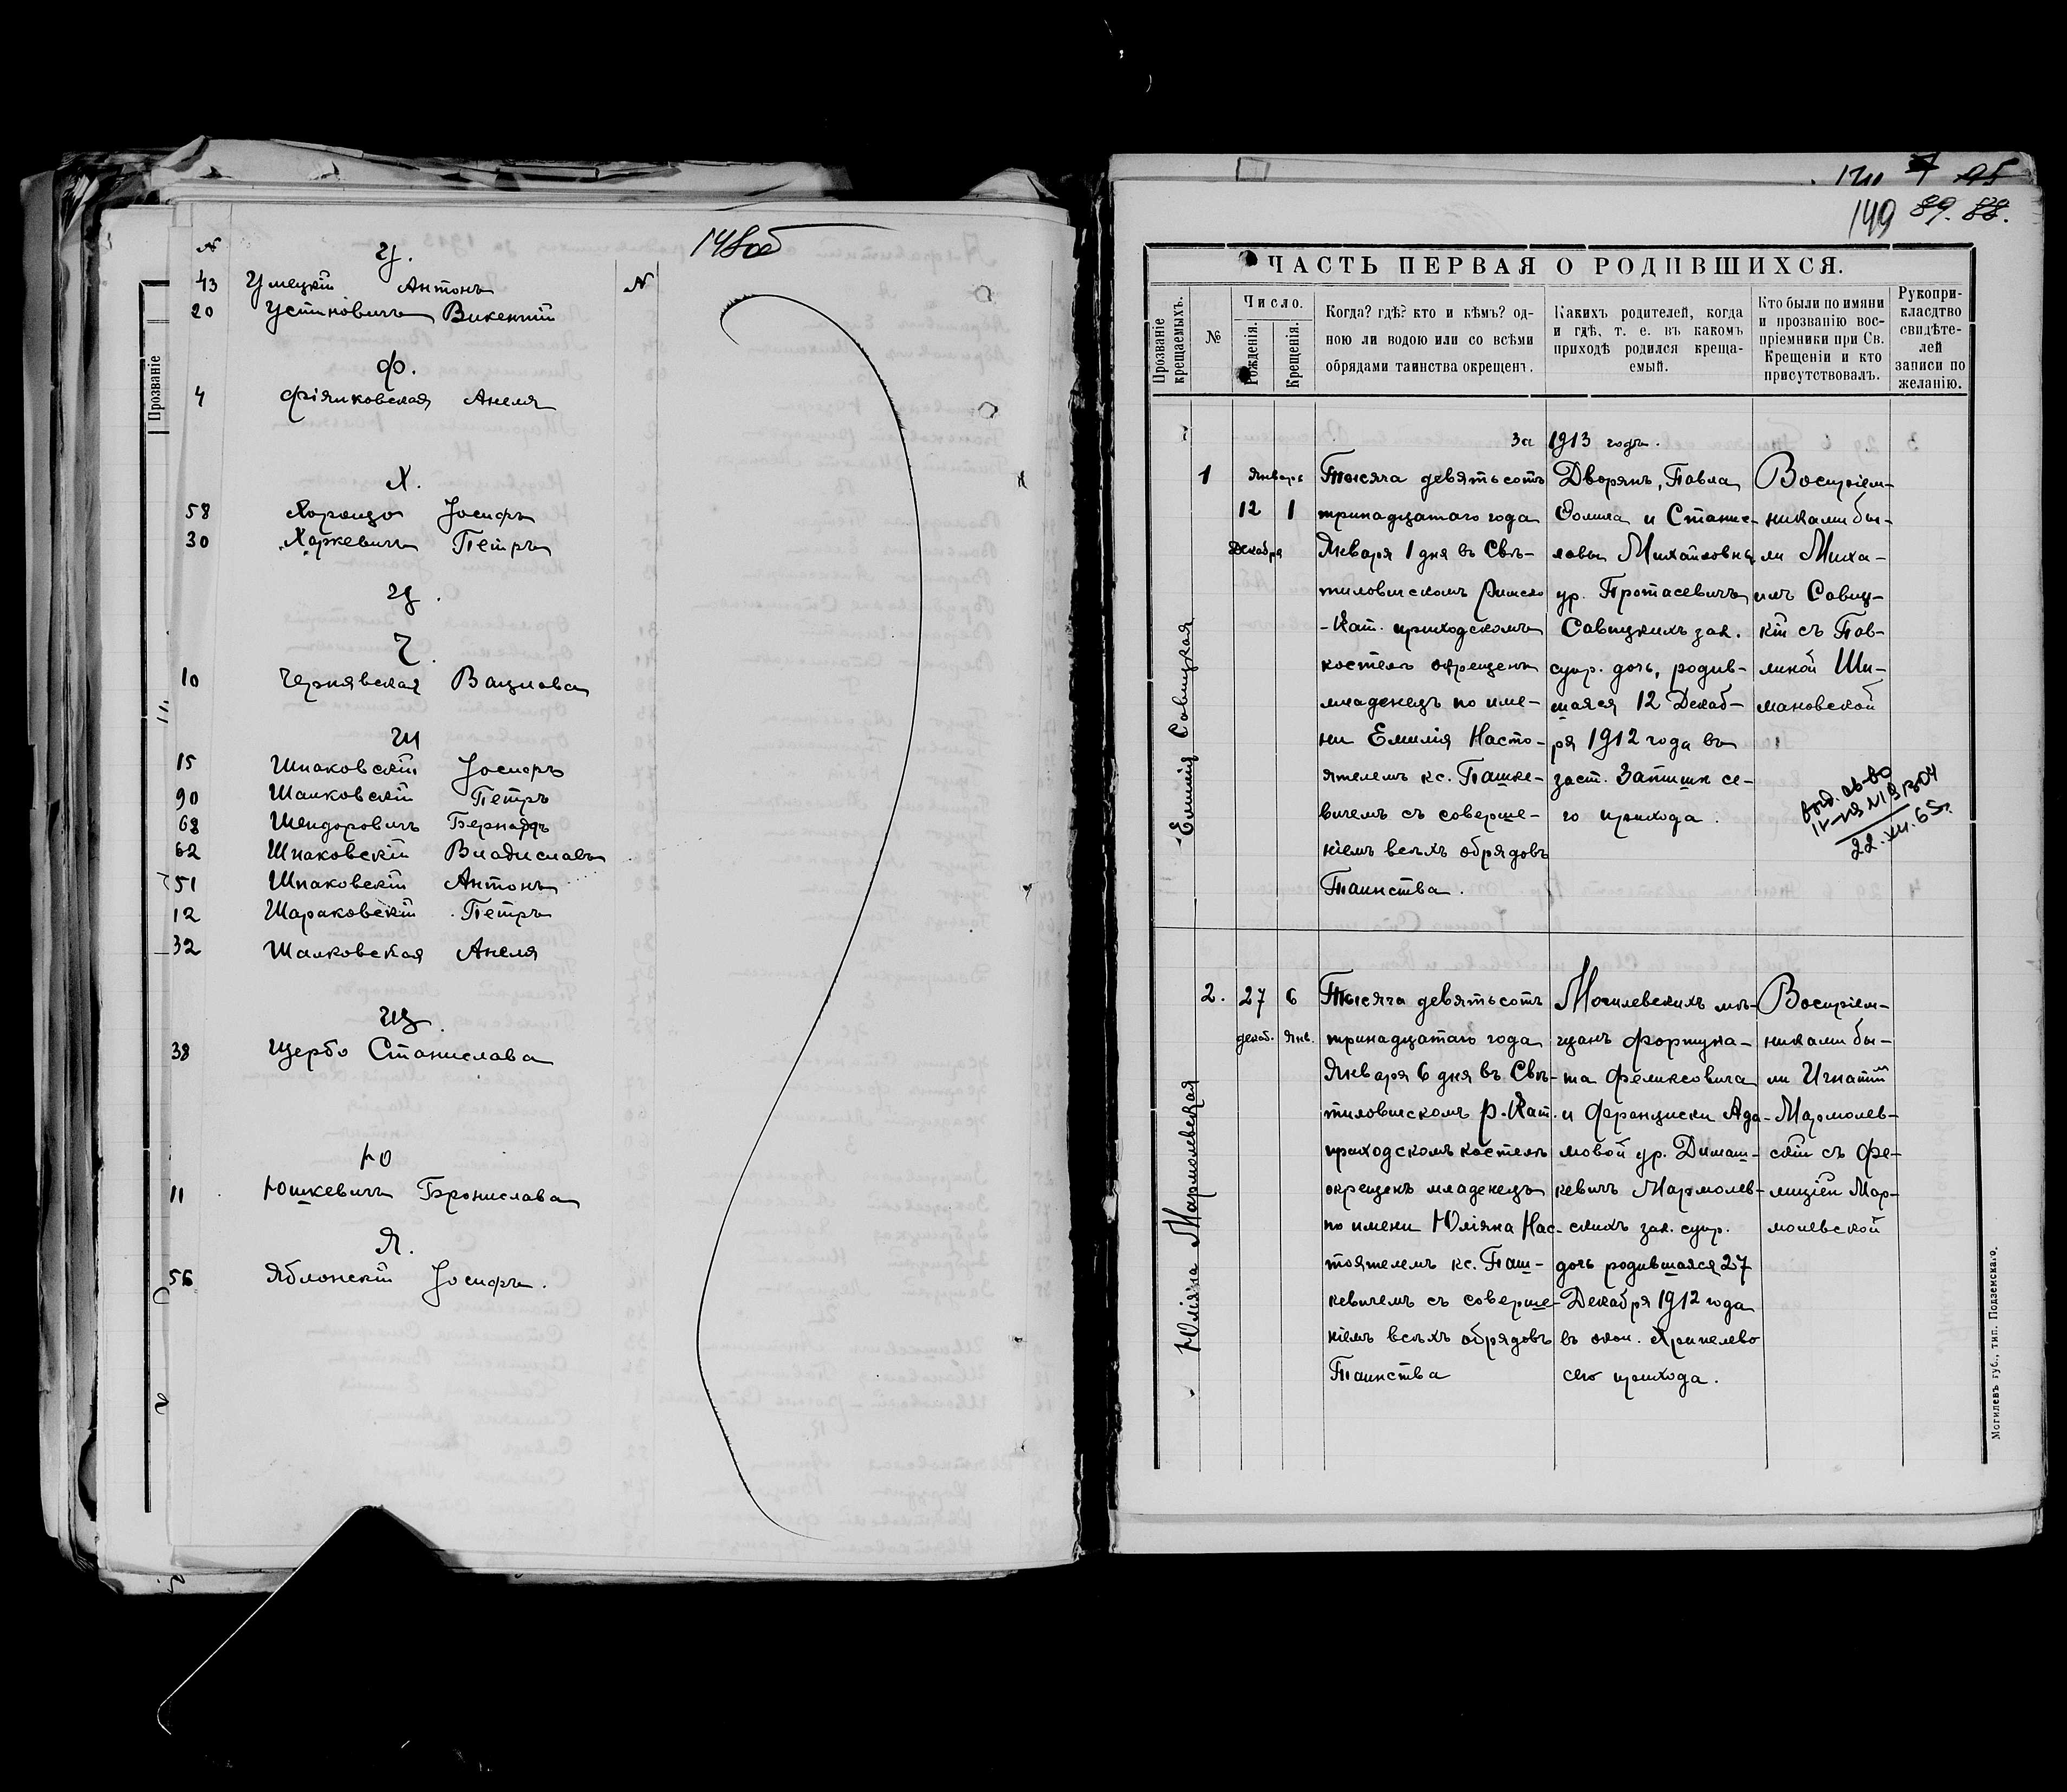 148об
№
У.
43 Умецкій Антонъ
№
20 Устиновичъ Викентій
Прозваніе
Ф.
4 Фіялковская Анеля
Х.
58 Іосифъ
30 Харкевичъ Петръ
Ц.
Ч.
10 Чернявская Вацлава
Ш
15 Шпаковскій Іосифъ
90 Шалковскій Петръ
68 Шендоровичъ Бернардъ
62 Шпаковскій Владиславъ
51 Шпаковскій Антонъ
12 Шараковскій Петръ
32 Шалковская Анеля
Щ.
38 Щербо Станислава
Ю
11 Юшкевичъ Бронислава
Я.
56 Яблонскій Іосифъ.
149 89. 88.
ЧАСТЬ ПЕРВАЯ О РОДИВШИХСЯ.
Прозваніе крещаемыхъ.
№
Число.
Рожденія.
Крещенія.
Когда? гдѣ? кто и кѣмъ? од-
ною ли водою или со всѣми
обрядами таинства окрещенъ.
Какихъ родителей, когда
и гдѣ, т. е. въ какомъ
приходѣ родился креща-
емый.
Кто были по имяни
и прозванію вос-
пріемники при Св.
Крещеніи и кто
присутствовалъ.
Рукопри-
кладство
свидѣте-
лей
записи по
желанію.
За 1913 годъ.
Емилія Савицкая
1
Январь
12 1
Декабря
Тысяча девятьсотъ
тринадцатаго года
Января 1 дня въ Свѣ-
тиловискомъ Римско
-Кат. приходскомъ
костелѣ окрещенъ
младенецъ по име-
ни Емилія Насто-
ятелемъ кс. Пашке-
вичемъ съ соверше-
ніемъ всѣхъ обрядовъ
Таинства.
Дворянъ, Павла
Фомича и Станис-
лавы Михайловны
ур. Протасевичъ
Савицкихъ зак.
супр. дочь, родив-
шаяся 12 Декаб-
ря 1912 года въ
заст. се-
го прихода.
Воспріем-
никами бы-
ли Миха-
илъ Савиц-
кій съ Пав-
линой Ши-
мановской
выд. св-во
22.XII.65г.
Юліяна Мармолевская
2. 27 6
декаб. Янв.
Тысяча девятьсотъ
тринадцатаго года
Января 6 дня въ Свѣ-
тиловискомъ р.-Кат.
приходскомъ костелѣ
окрещенъ младенецъ
по имени Юліяна Нас-
тоятелемъ кс. Паш-
кевичемъ съ соверше-
ніемъ всѣхъ обрядовъ
Таинства
Могилевскихъ мѣ-
щанъ Фортуна-
та Феликсовича
и Францишки Ада-
мовой ур. Димаш-
кевичъ Мармолев-
скихъ зак. супр.
дочь родившаяся 27
Декабря 1912 года
въ окол. Хрипелево
сего прихода.
Воспріем-
никами бы-
ли Игнатій
Мармолев-
скій съ Фе-
лиціей Мар-
молевской
Могилевъ губ., тип. Подземскаго.